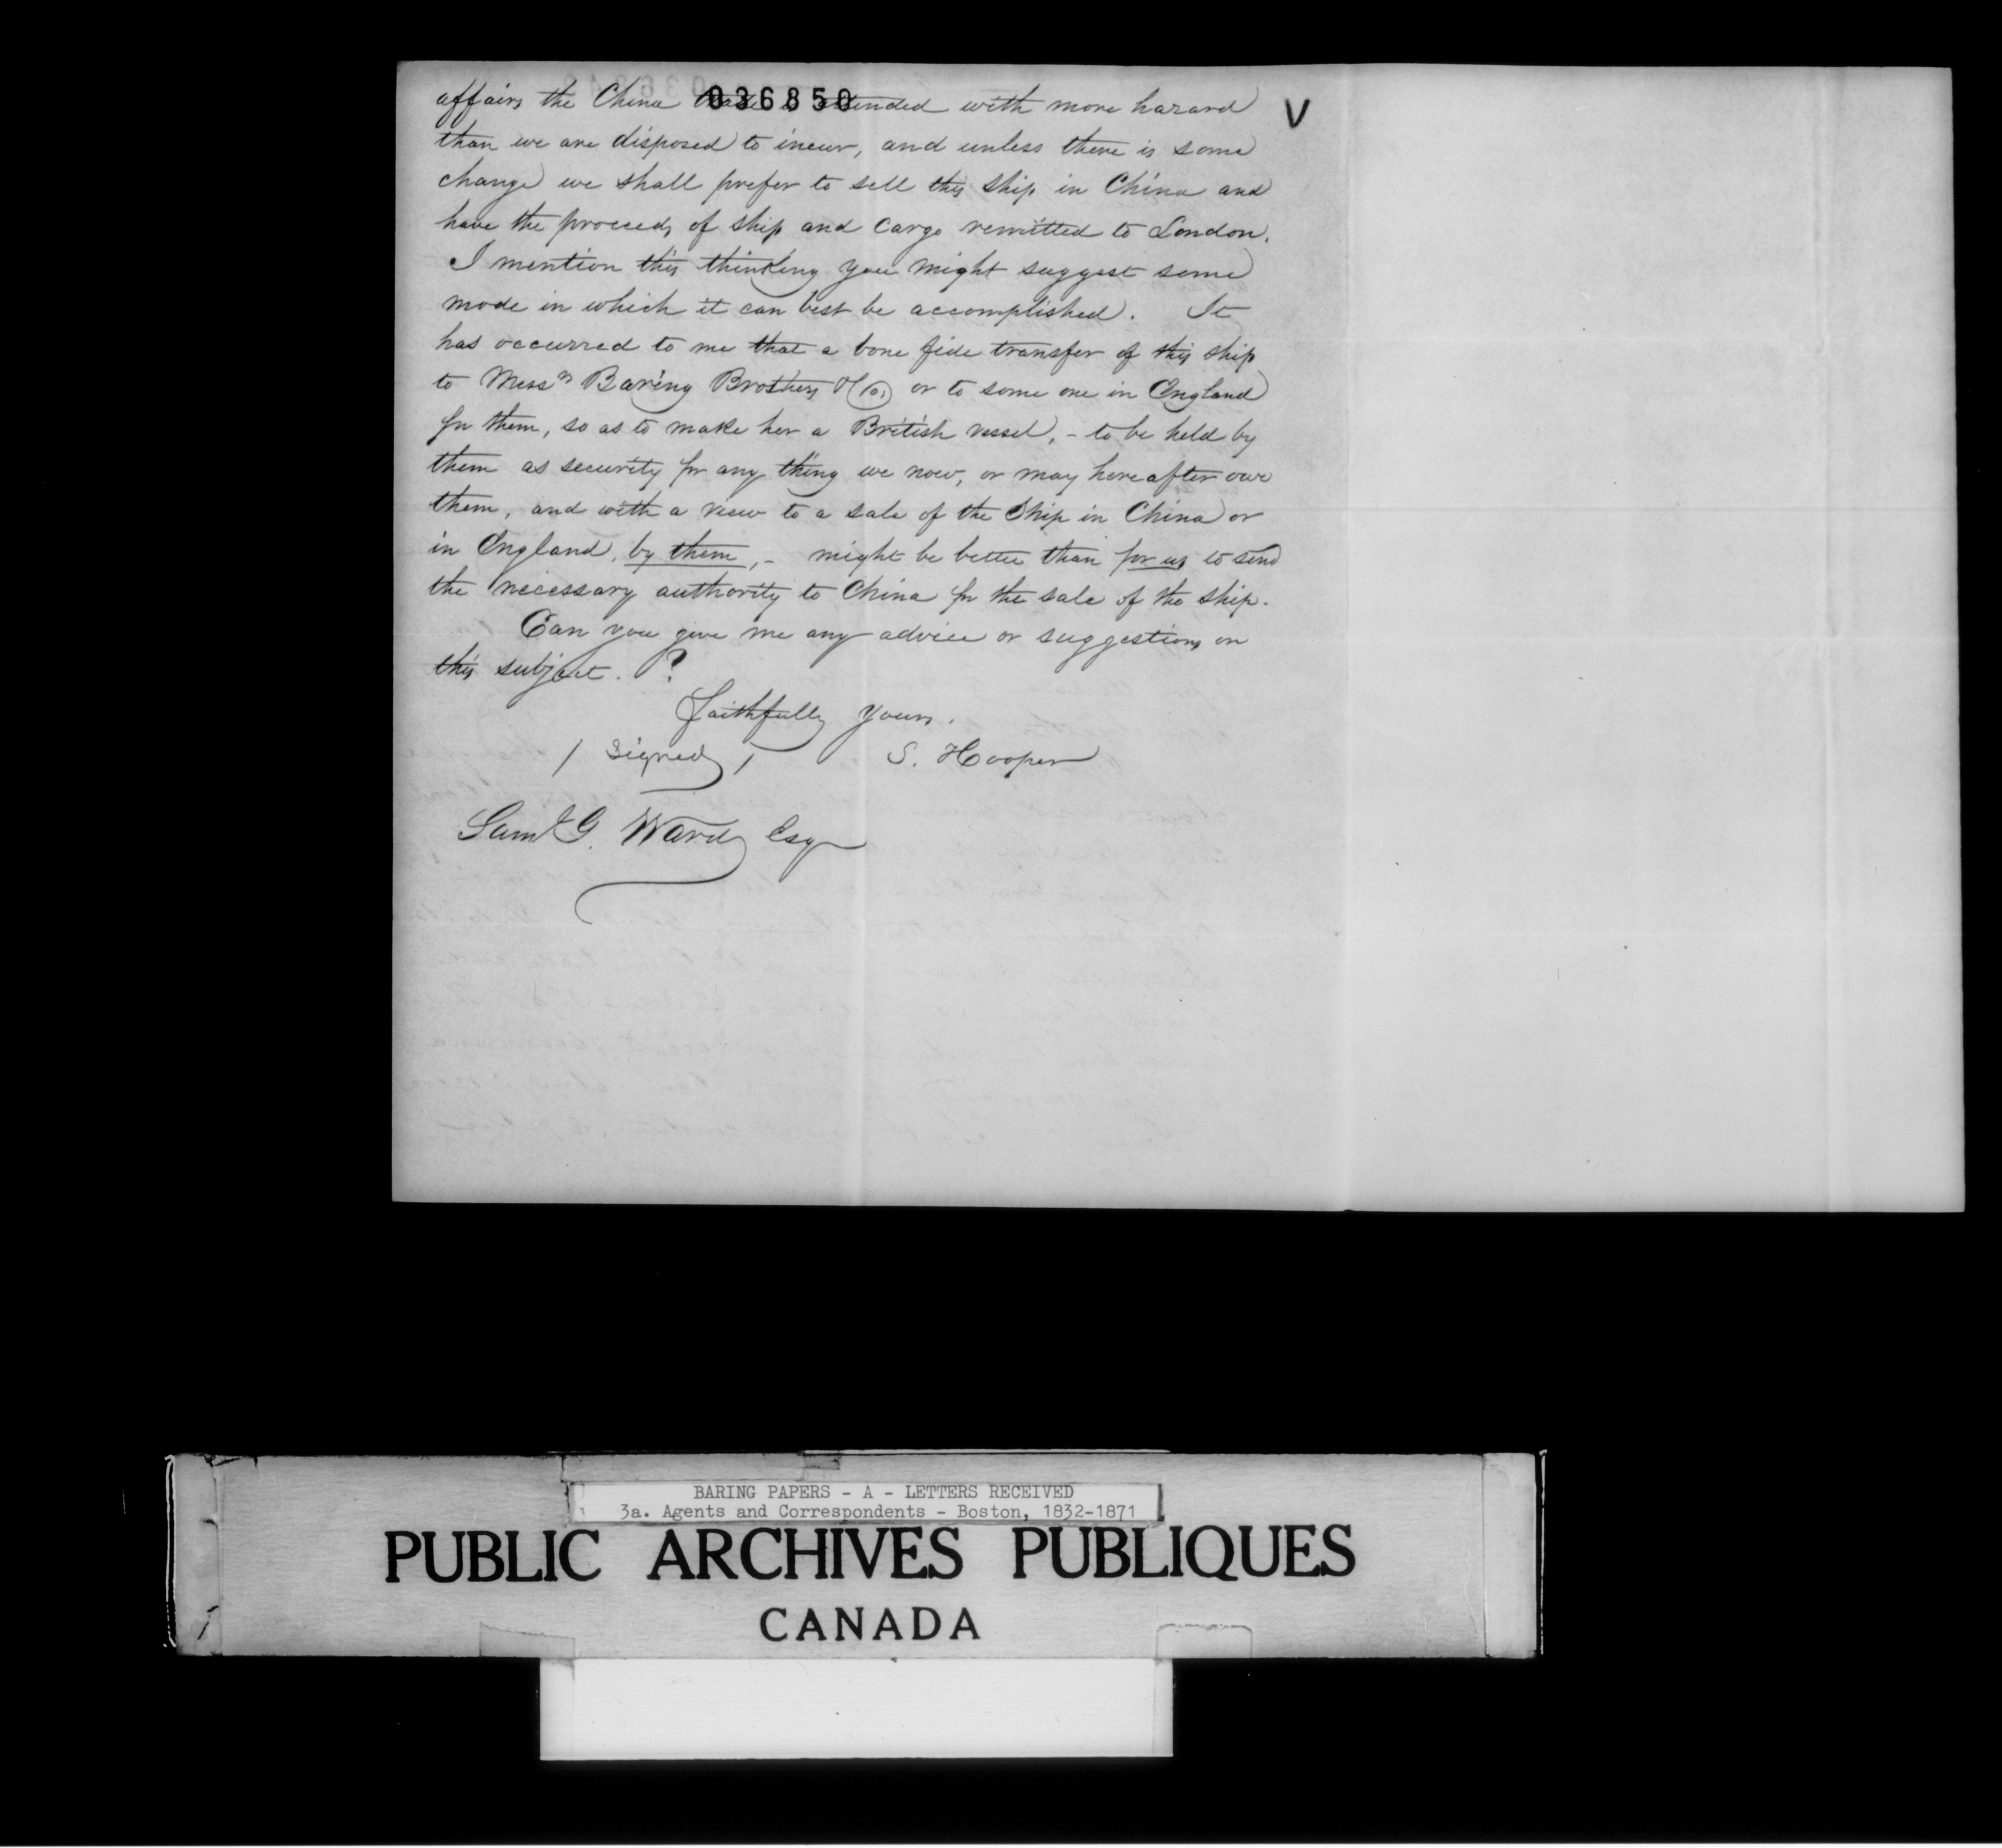 036850
V
affairs the China trade is attended with more hazard
than we are disposed to incur, and unless there is some
change we shall prefer to sell this ship in China and
have the proceeds of ship and cargo remitted to London.
I mention this thinking you might suggest some
mode in which it can best be accomplished. It
has occurred to me that a bone fide transfer of this ship
to Messrs Baring Brothers & Co; or to some one in England
for them, so as to make her a British vessel, - to be held by
them as security for any thing we now, or may hereafter owe
them, and with a view to a sale of the Ship in China or
in England, by them, - might be better than for us to send
the necessary authority to China for the sale of the ship.
Can you give me any advice or suggestions on
this subject. ?
Faithfully Yours.
/ Signed / S. Hooper
Saml G. Ward Esq
BARING PAPERS - A - LETTERS RECEIVED
3a. Agents and Correspondents - Boston, 1832-1871
PUBLIC ARCHIVES PUBLIQUES
CANADA